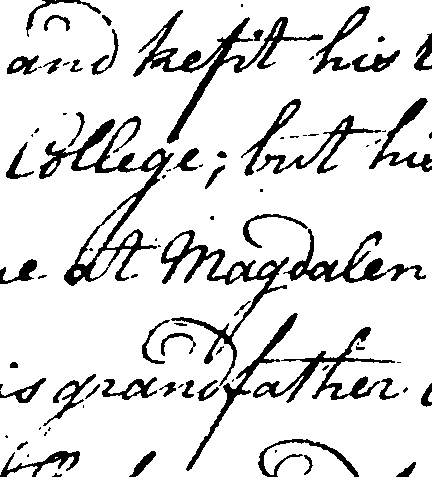 and kept his
College; but his
at Magdalen
grandfather